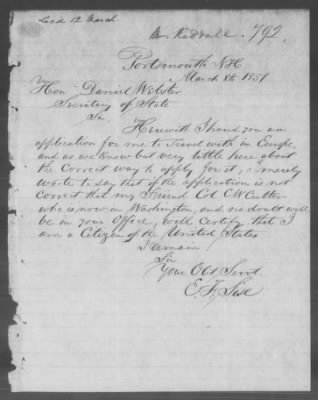 Recd 12 March.
792.
Portsmouth N.H.
March 8th 1851
Hon. Daniel Webster
Secretary of State
Sir,
Herewith I hand you an
application for me to travel with in Europe
and as we know but very little here about
the correct way to apply for it, I merely
write to say that if the application is not
correct that my Friend Col. Cutter
who is now in Washington, and no doubt will
be in your Office, will Certify that I
am a Citizen of the United States
I remain
Sir
Your Obt Servt
E. F. Sise